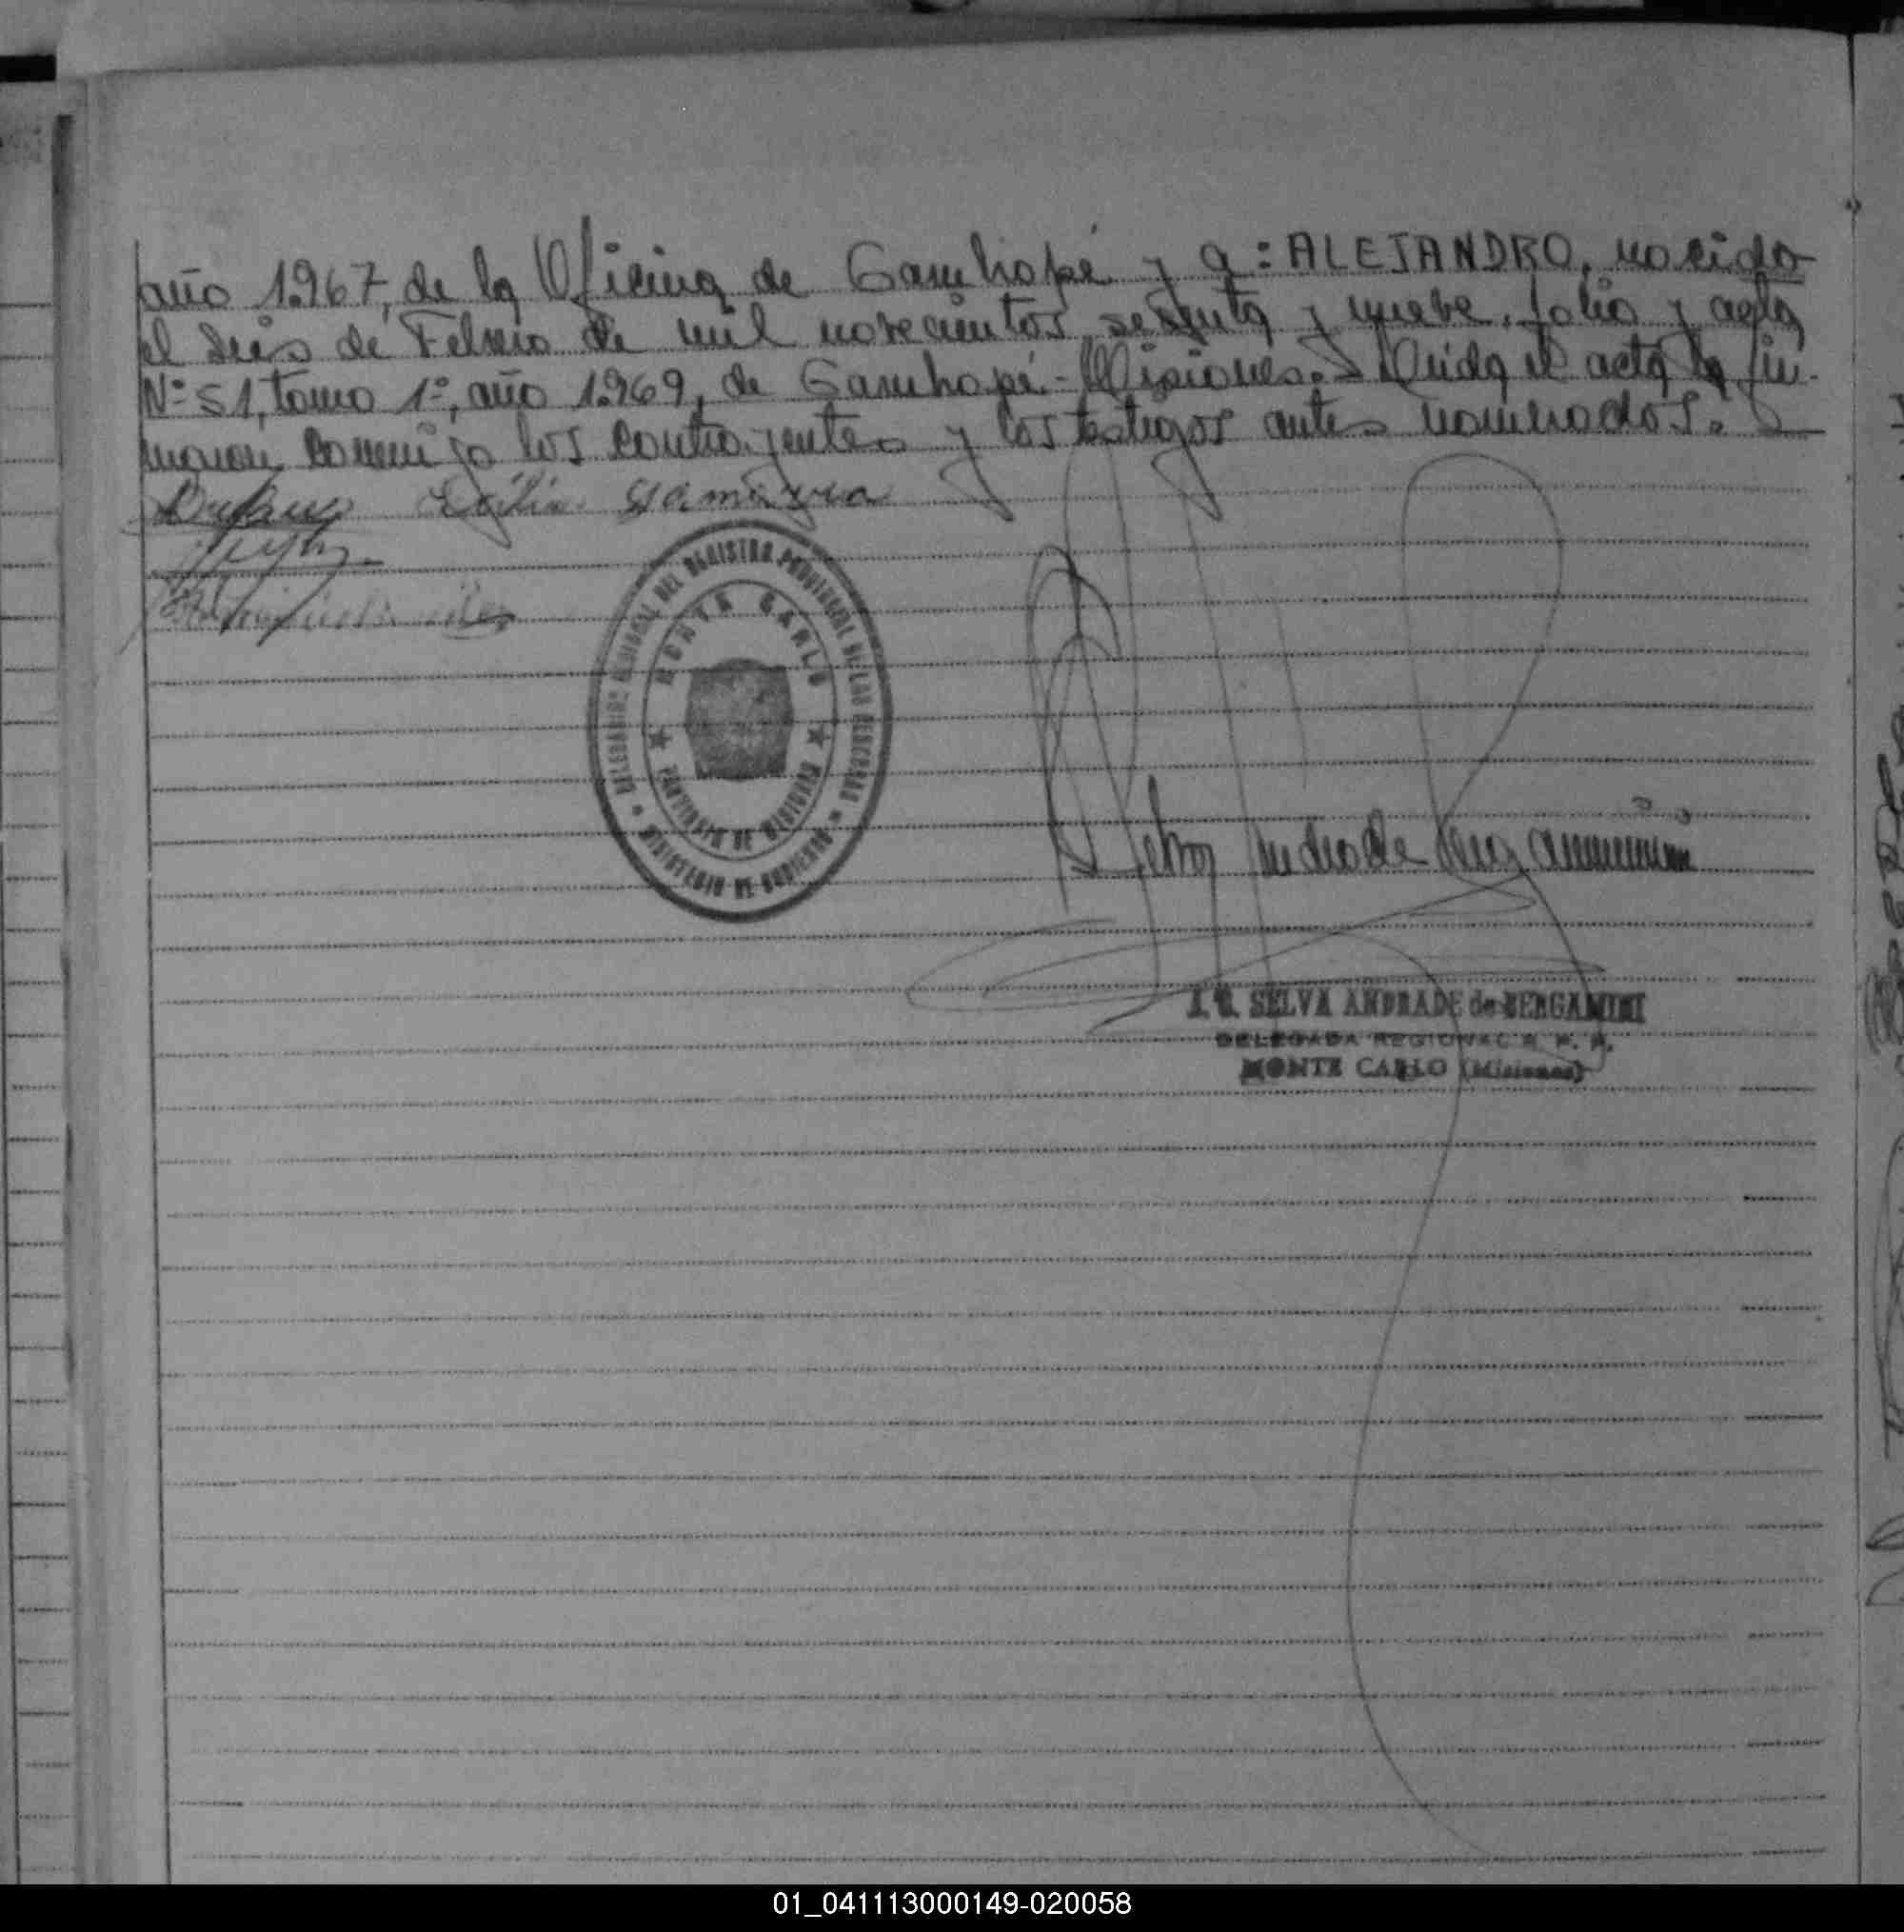 año 1.967, de la Oficina de Garuhapé y a: ALEJANDRO, nacido
el seis de Febrero de mil novecientos sesenta y nueve, folio y acta
Nº 51, tomo 1º, año 1.969, de Garuhapé - Misiones. Leída el acta la fir-
maron conmigo los contrayentes y los testigos antes nombrados.
DELEGACION REGIONAL DEL REGISTRO PROVINCIAL DE LAS PERSONAS
MONTE CARLO
PROVINCIA DE MISIONES
MINISTERIO DE GOBIERNO
Selva Andrade Bergamini
SELVA ANDRADE de BERGAMINI
DELEGADA REGIONAL R. P. P.
MONTE CARLO (Misiones)
01_041113000149-020058